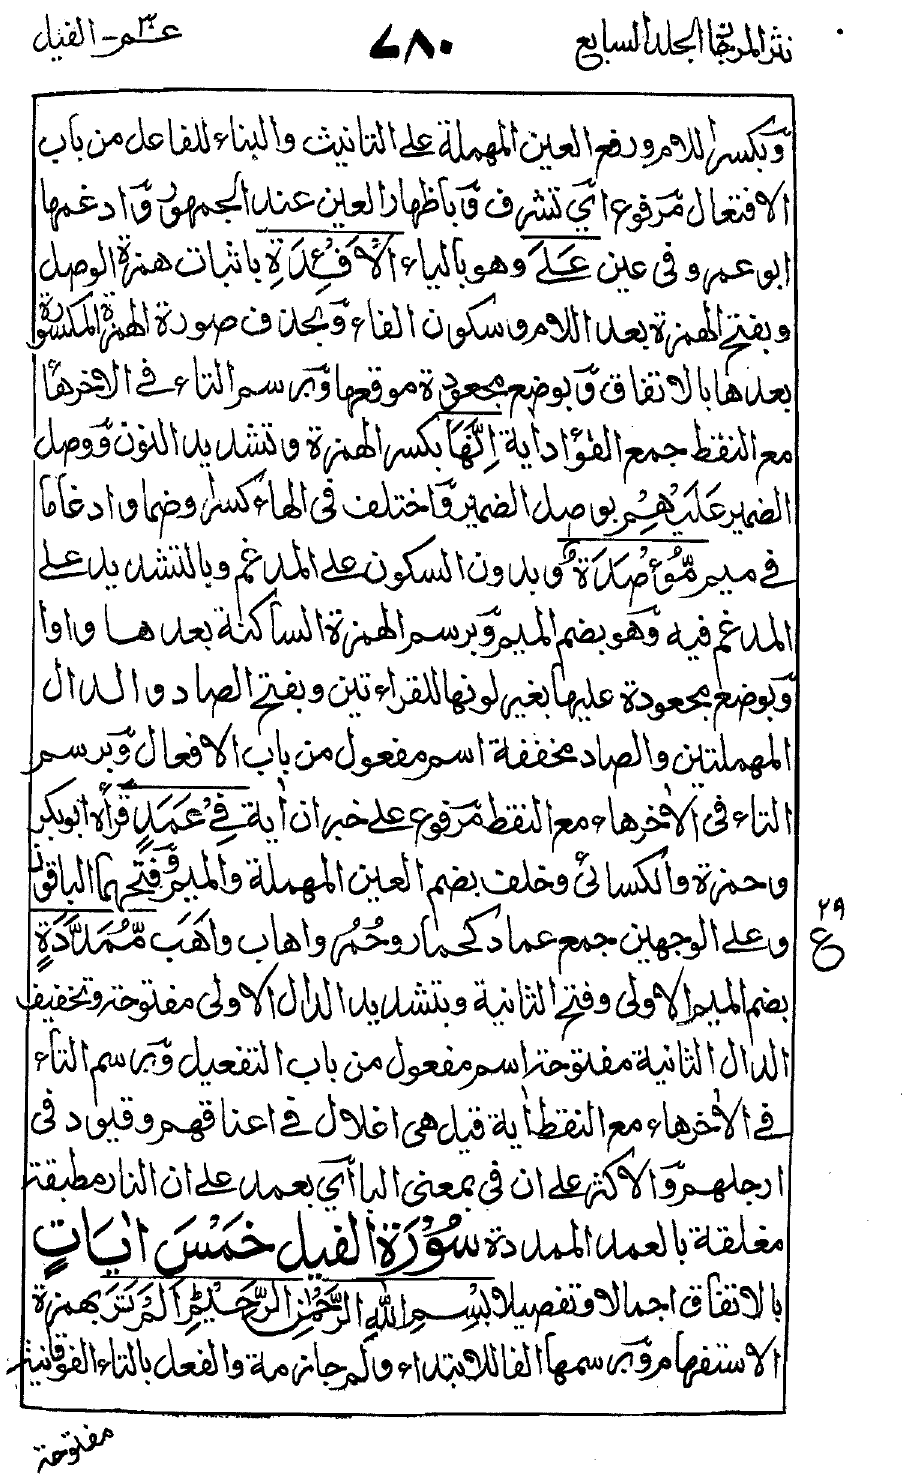 نثر المرجان الجلد السابع ٧٨٠ عم ٣٠ - الفيل
وَبكسر اللام ورفع العين المهملة على التانيث والبناء للفاعل من باب
الافتعال مرفوع اى تشرف وَباظهار العين عند الجمهور وَادغمها
ابو عمرو فى عين عَلَى وهو بالياء الْاَفْـِٕدَةِ باثبات همزة الوصل
وبفتح الهمزة بعد اللام وسكون الفاء وَبحذف صورة الهمزة المكسورة
بعدها بالاتفاق وَبوضع مجعودة موقعها وَبرسم التاء فى الاخر هاءً
مع النقط جمع الفؤاد اية اِنَّهَا بكسر الهمزة وتشديد النون وَوصل
الضمير عَلَيْهِمْ بوصل الضمير وَاختلف فى الهاء كسرا وضما وادغاما
فى ميم مُّؤْصَدَةٌ وبدون السكون على المدغم وبالتشديد على
المدغم فيه وَهو بضم الميم وَبرسم الهمزة الساكنة بعدها واوا
وَبوضع مجعودة عليها بغير لونها للقراءتين وبفتح الصاد والدال
المهملتين والصاد مخففة اسم مفعول من باب الافعال وَبرسم
التاء فى الاخر هاء مع النقط مرفوع على خبر ان اية فِىْ عَمَدٍ قرأه ابوبكر
وحمزة والكسائى وخلف بضم العين المهملة والميم وَفتحهما الباقون
وعلى الوجهين جمع عماد كحمار وحُمُر واهاب واَهَب مُّمَدَّدَةٍ
بضم الميم الاولى وفتح الثانية وبتشديد الدال الاولى مفتوحة وتخفيف
الدال الثانية مفتوحة اسم مفعول من باب التفعيل وَبرسم التاء
فى الاخر هاء مع النقط اية قيل هى اغلال فى اعناقهم وقيود فى
ارجلهم وَالاكثر على ان فى بمعنى البا اى بعمد على ان النار مطبقة
مغلقة بالعمد الممددة سُوْرَةُ الفيل خَمْسَ اٰيَاتٍ
بالاتفاق اجمالا وتفصيلا بِسْمِ اللهِ الرَّحْمٰنِ الرَّحِيْمِ اَلَمْ تَرَ بهمزة
الاستفهام وَبرسمها الفا للابتداء وَلم جازمة والفعل بالتاء الفوقانية
٢٩
ع
مفتوحة